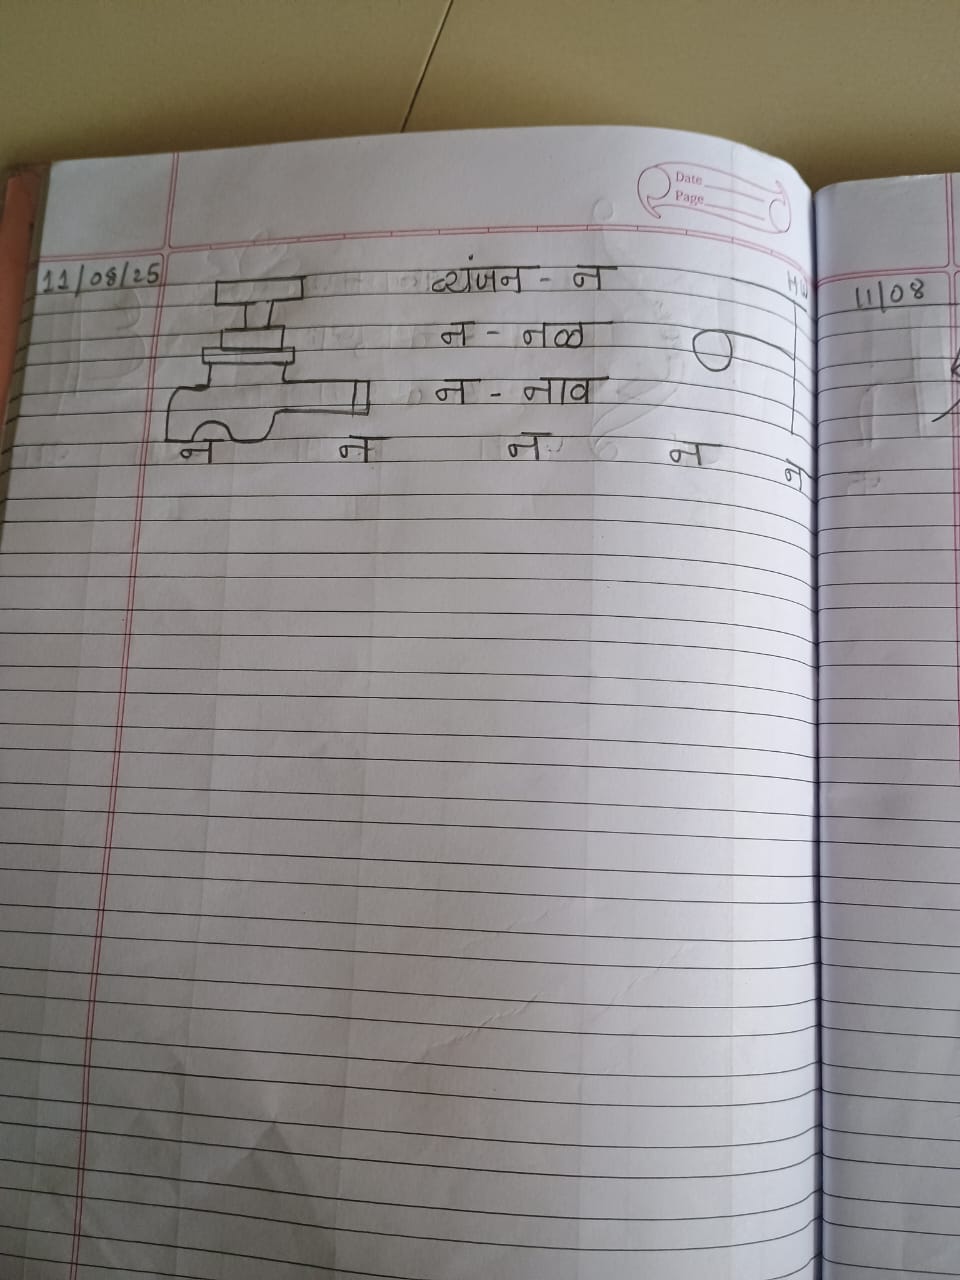 Date
Page
11/08/25
व्यंजन - न
HW
न - नळ
न - नाव
न न न न न
11/08